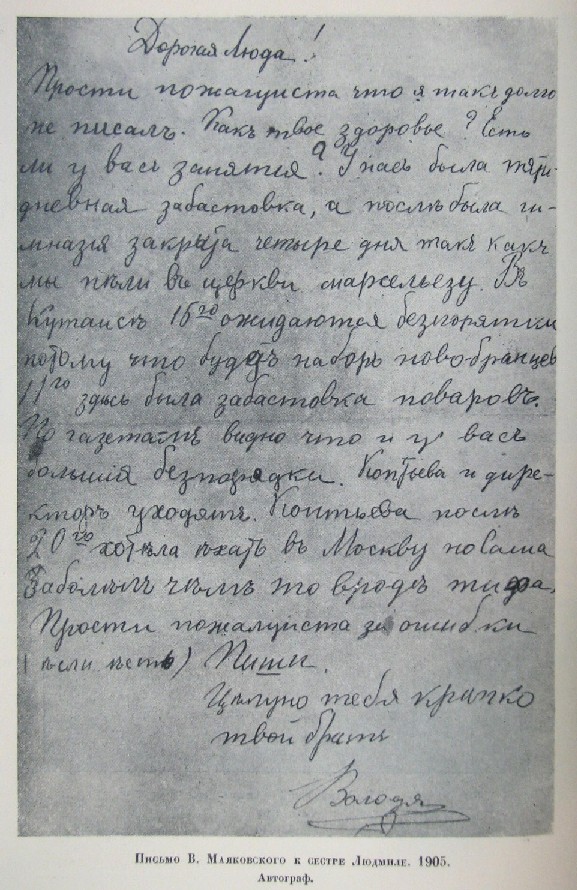 Дорогая Люда!
Прости пожалуиста что я такъ долго
не писалъ. Какъ твое здоровье? Есть
ли у васъ занятия? У насъ была
дневная забастовка, а послѣ была ги-
мназія закрыта четыре дня такъ какъ
мы пѣли въ церкви марсельезу. Въ
Кутаисѣ 15го ожидаются безпорятки
потому что будетъ наборъ новобранцевъ
11го здѣсь была забастовка поваровъ.
По газетамъ видно что и у васъ
большія безпорядки. Коптьева и дире-
кторъ уходятъ. Коптьева послѣ
20го хотѣла ѣхать въ Москву но Саша
Заболѣлъ чѣмъ то вродѣ тифа.
Прости пожалуиста за ошибки
(ѣсли ѣсть) Пиши.
Цѣлую тебя крѣпко
твой братъ
Володя
Письмо В. Маяковского к сестре Людмиле. 1905.
Автограф.